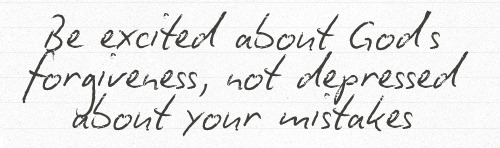 Be excited about Gods
forgiveness, not depressed
about your mistakes